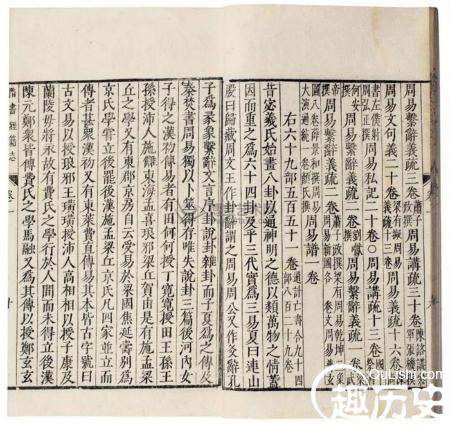 周易繫辭義疏
周易講疏三十卷
周易文句義二十卷
周易義疏十六卷
書左僕射周弘正撰
周易私記二十卷○周易講疏十三卷
何妥撰
周易繫辭義疏二卷
劉瓛撰
周易繫辭義疏
帝撰
周易繫辭義疏三卷
蕭子政撰
圖八卷薛景和撰
大演通統
周易譜一卷
右六十九部五百五十一卷
通計亡書合九十四
部八百二十九卷
昔宓羲氏始畫八卦以通神明之德以類萬物之情蓋
因而重之為六十四卦及乎三代實為三易夏曰連山
殷曰歸藏周文王作卦辭謂之周易周公又作爻辭孔
子為彖象繫辭文言序卦說卦雜卦而子夏為之傳及
秦焚書周易獨以卜筮得存唯失說卦三篇後河內女
子得之漢初傳易者有田何何授丁寬寬授田王孫王
孫授沛人施讎東海孟喜琅邪梁丘賀由是有施孟梁
丘之學又有東郡京房自云受易於梁國焦延壽別為
京氏學嘗立後罷後漢施孟梁丘京氏凡四家並立而
傳者甚眾漢初又有東萊費直傳易其本皆古字號曰
古文易以授琅邪王璜璜授沛人高相相以授子康及
蘭陵毋將永故有費氏之學行於人間而未得立後漢
陳元鄭眾皆傳費氏之學馬融又為其傳以授鄭玄玄
隋書經籍志
卷一
十
Qulishi.com
趣历史